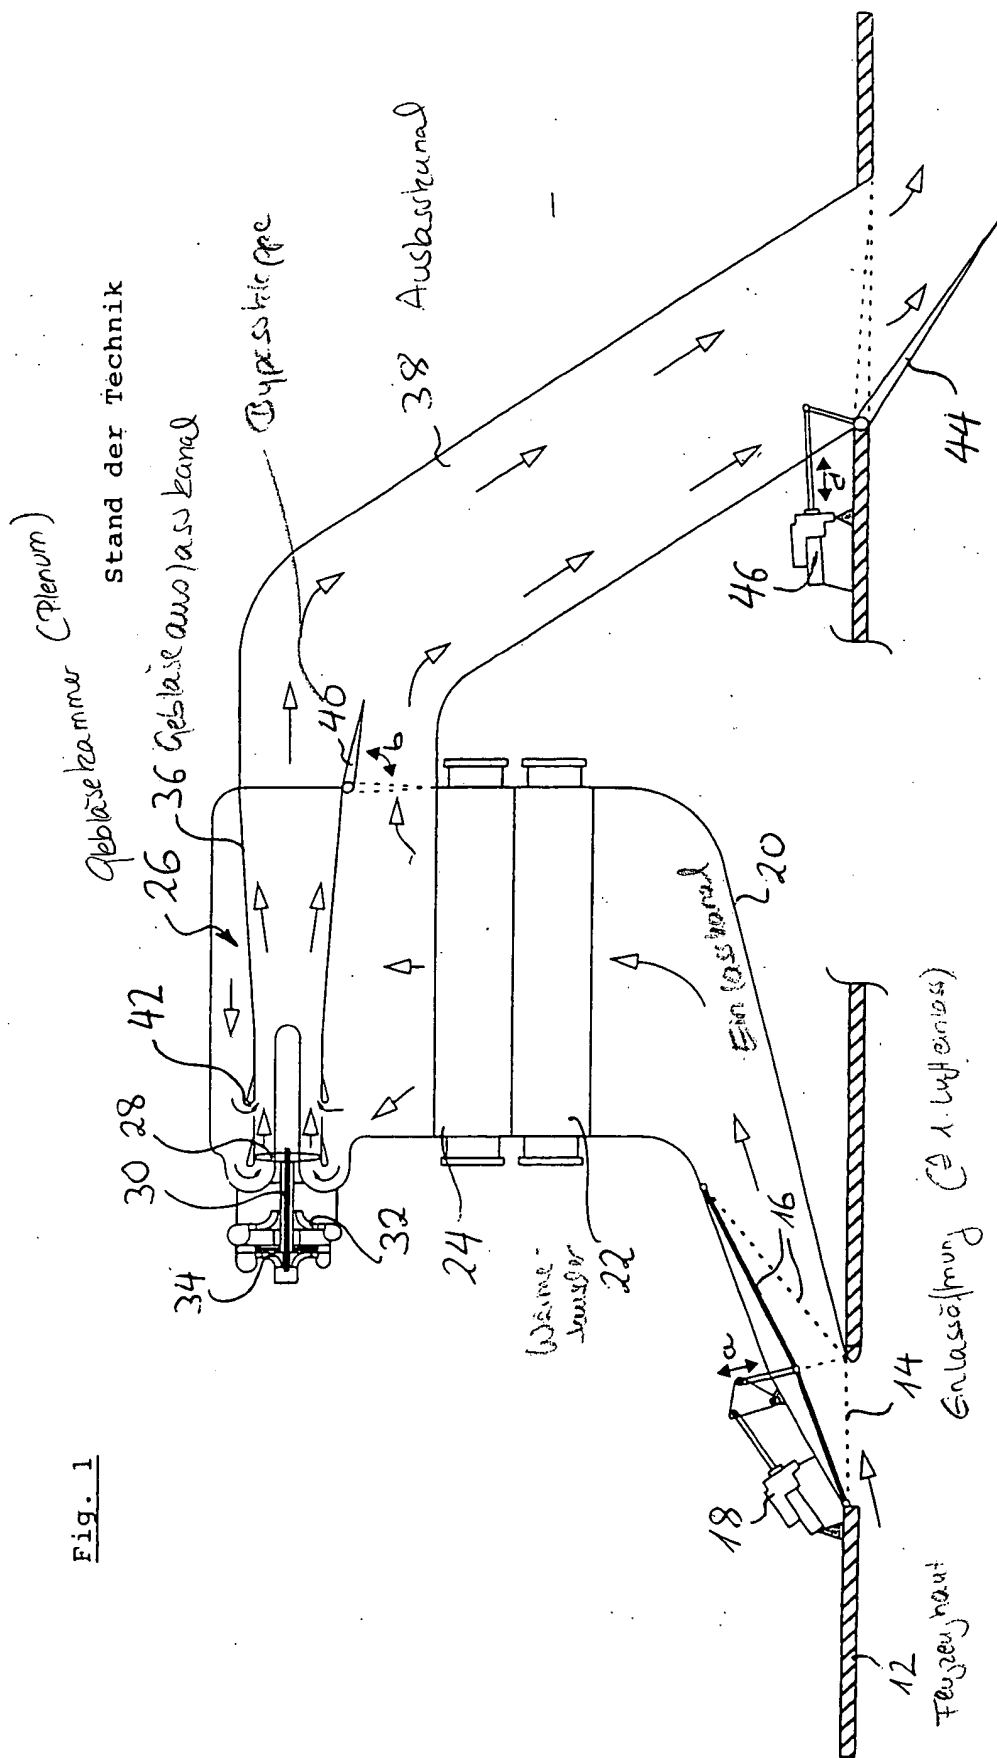 Fig. 1
Stand der Technik
Gebläsekammer (Plenum)
26
36 Gebläseauslasskanal
Bypassklappe
38 Auslasskanal
42
28
30
34
32
40
b
24
Wärme-
tauscher
22
Einlasskanal
20
16
a
18
14
Einlassöffnung
12
Flugzeughaut
46
d
44